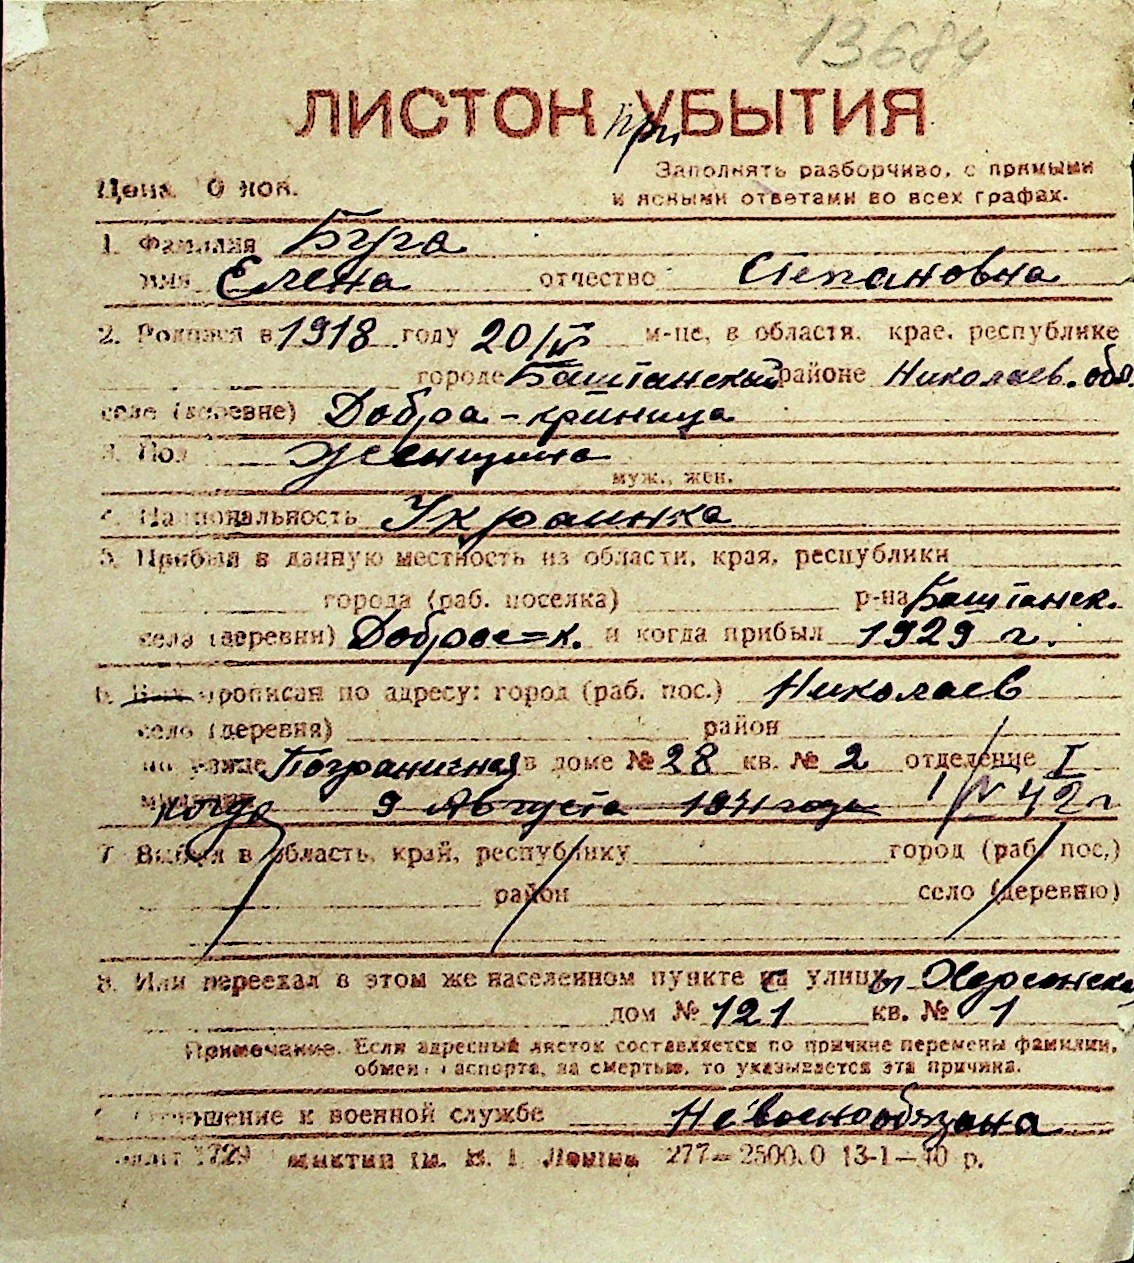 13684
ЛИСТОК УБЫТИЯ
при
Заполнять разборчиво, с прямыми
Цена 0 коп. и ясными ответами во всех графах.
1. Фамилия Буга
имя Елена отчество Степановна
2. Родился в 1918 году 20/IV м-це, в области, крае, республике
городе Баштанский районе Николаев. обл.
селе (деревне) Добра-криница
3. Пол Женщина
муж., жен.
4. Национальность Украинка
5. Прибыл в данную местность из области, края, республики
города (раб. поселка) р-на Баштанск.
села (деревни) Доброе=к. и когда прибыл 1929 г.
6. Был прописан по адресу: город (раб. пос.) Николаев
село (деревня) район
по улице Пограничная в доме № 28 кв. № 2 отделение I
милиции когда 9 Августа 1941 года 1/IV 42 г
7. Выбыл в область, край, республику город (раб. пос.)
район село (деревню)
8. Или переехал в этом же населенном пункте с улицы Херсонск
дом № 121 кв. № 1
Примечание. Если адресный листок составляется по причине перемены фамилии,
обмен паспорта, за смертью, то указывается эта причина.
Отношение к военной службе Невоенообязана
1729 277—2500.0 13-1—40 р.